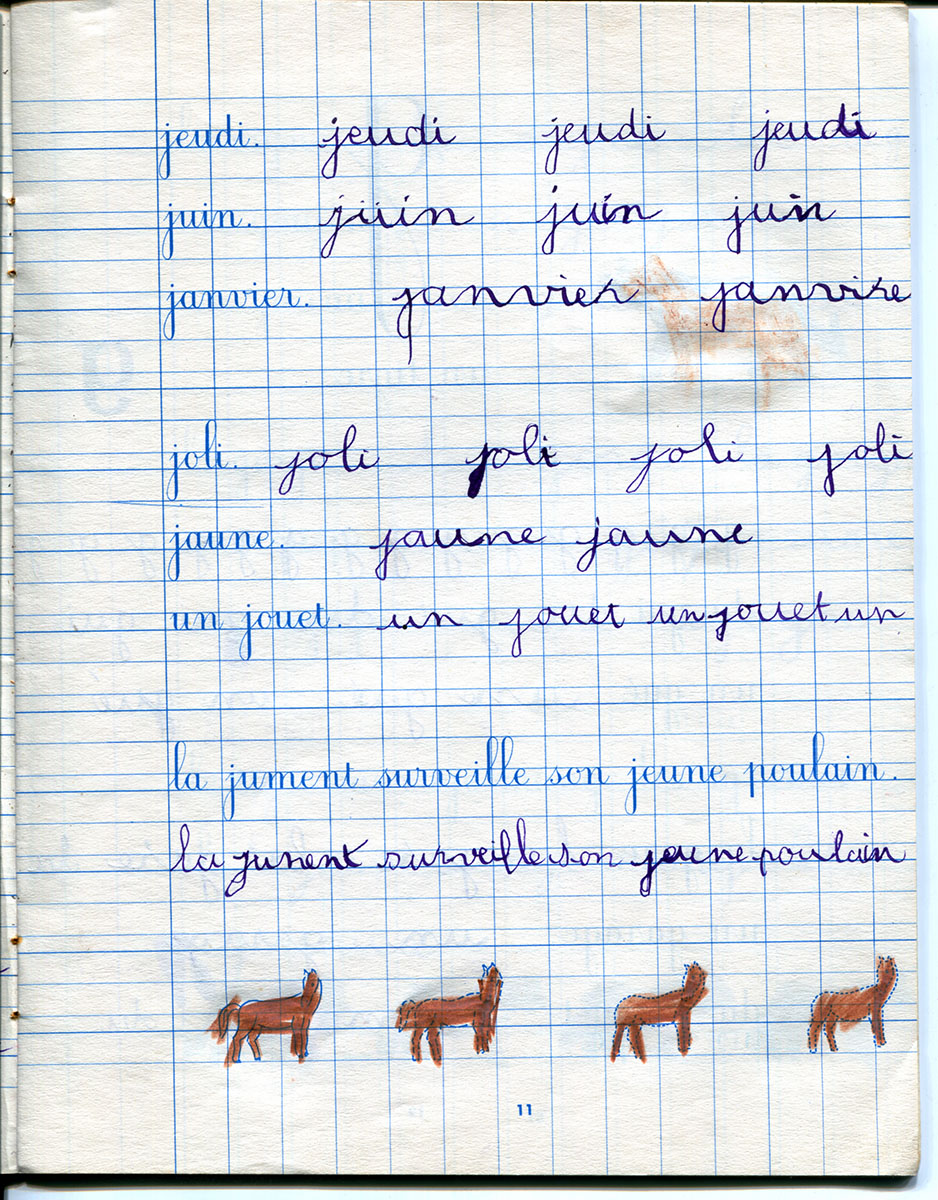 jeudi. jeudi jeudi jeudi
juin. juin juin juin
janvier. janvier janvire
joli. joli joli joli joli
jaune. jaune jaune
un jouet. un jouet un jouet un
la jument surveille son jeune poulain.
la junent surveille son jeune poulain
11